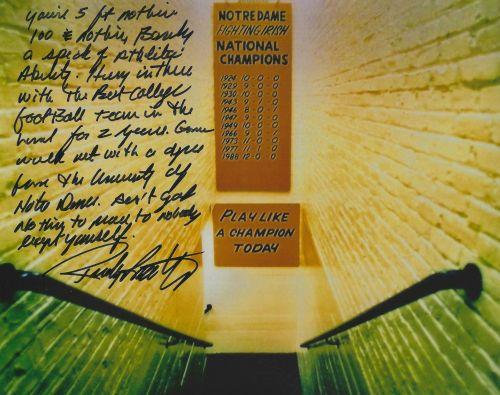 you're 5 ft nothin
100 & nothin, Barely
a speck of athletic
Ability. Hung in there
with the Best College
football team in the
land for 2 years. Gonna
walk out with a degree
from the University of
Notre Dame. Don't gotta
nothing to prove to nobody
except yourself.
NOTRE DAME
FIGHTING IRISH
NATIONAL
CHAMPIONS
1924 10-0-0
1929 9-0-0
1930 10-0-0
1943 9-1-0
1946 8-0-1
1947 9-0-0
1949 10-0-0
1966 9-0-1
1973 11-0-0
1977 11-1-0
1988 12-0-0
PLAY LIKE
A CHAMPION
TODAY